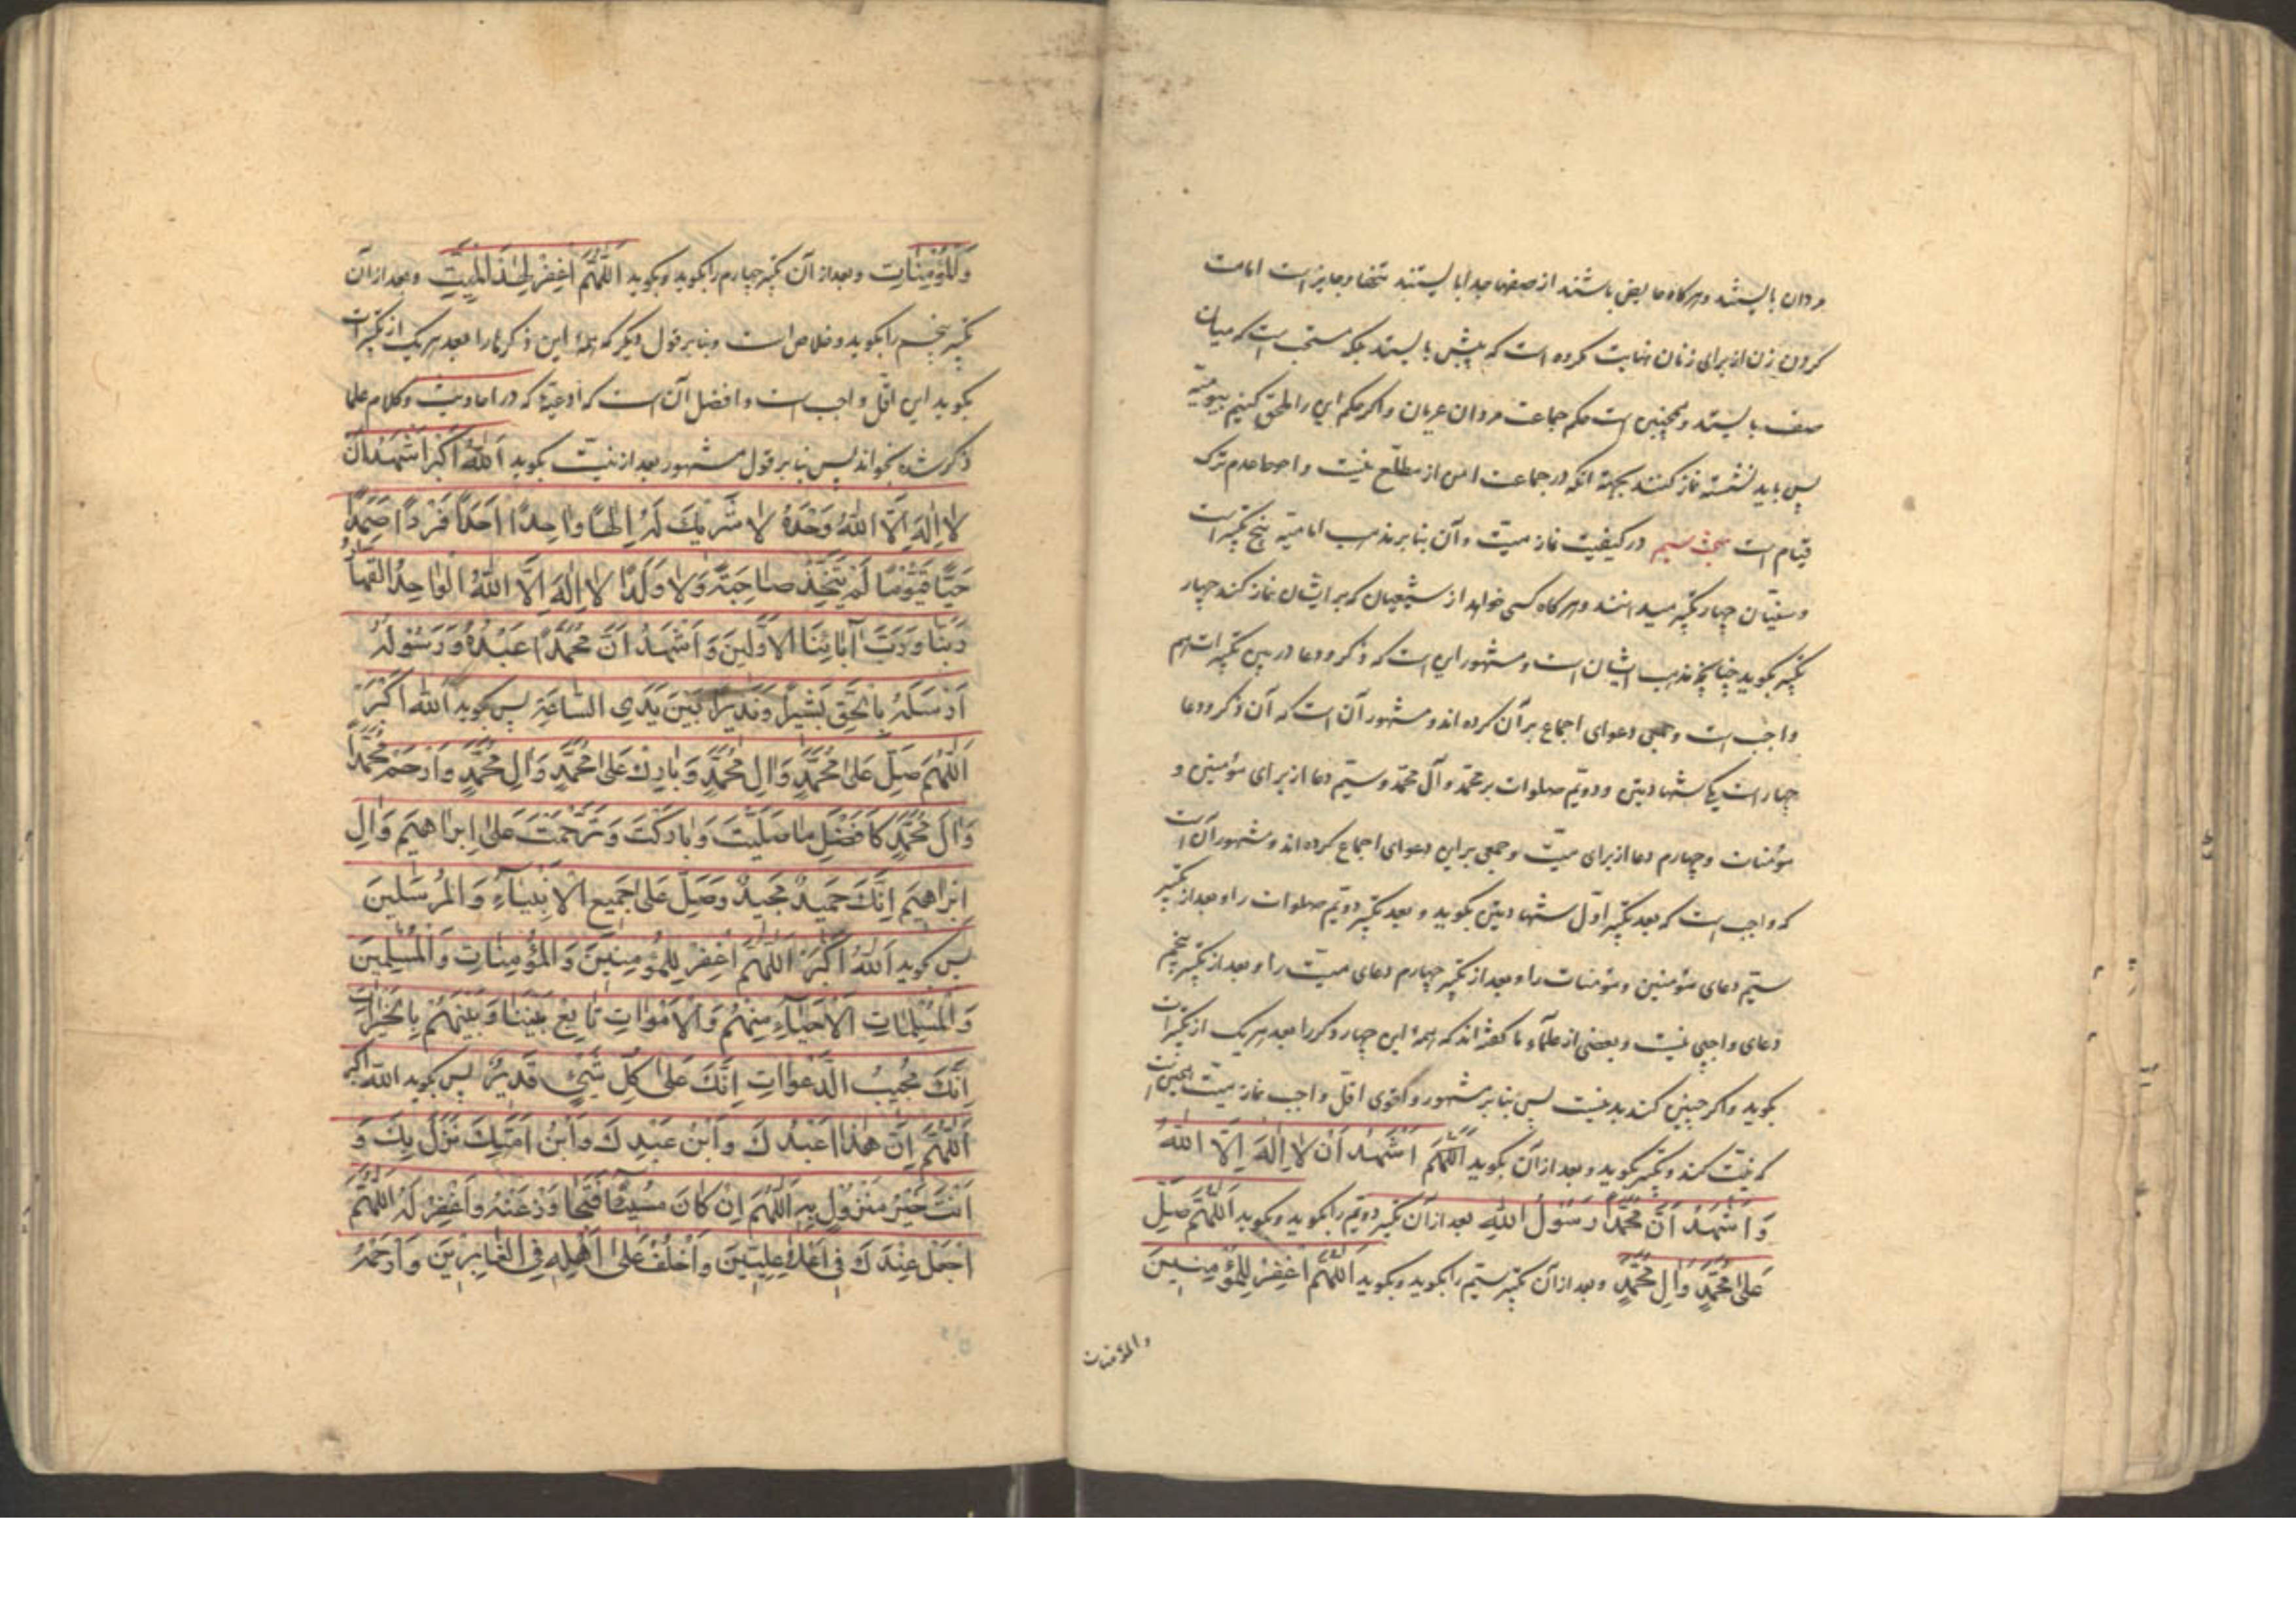 مردان بایستند و هرگاه حایض باشند از صفها جدا بایستند تنها و جایز است امامت
کردن زن از برای زنان نهایت مکروه است که پیش بایستد بلکه مستحب است که میان
صف بایستد و همچنین است حکم جماعت مردان عریان و اگر حکم این را ملحق کنیم بیومیّه
پس باید نشسته نماز کنند بجهة انکه در جماعت امن از مطلع نیست و احوط عدم ترک
قیام است مبحث سیم در کیفیت نماز میت و آن بنابر مذهب امامیّه پنج تکبیر است
و سنّیان چهار تکبیر میدانند و هرگاه کسی خواهد از شیعیان که بر ایشان نماز کند چهار
تکبیر بکوید چنانچه مذهب ایشان است و مشهور این است که ذکر و دعا در بین تکبیرات هم
واجب است و جمعی دعوای اجماع بر آن کرده اند و مشهور آن است که آن ذکر و دعا
چهار است یکی شهادتین و دویّم صلوات بر محمّد و آل محمّد و سیّم دعا از برای مؤمنین و
مؤمنات و چهارم دعا از برای میّت و جمعی بر این دعوای اجماع کرده اند و مشهور آن است
که واجب است که بعد تکبیر اوّل شهادتین بکوید و بعد تکبیر دویّم صلوات را و بعد از تکبیر
سیّم دعای مؤمنین و مؤمنات را و بعد از تکبیر چهارم دعای میّت را و بعد از تکبیر پنجم
دعای واجبی نیست و بعضی از علمآء ما کفته اند که همهٔ این چهار ذکر را بعد هر یک از تکبیرات
بکوید و اکر چنین کند بد نیست پس بنابر مشهور و اقوی اقلّ واجب نماز میّت این است
که نیّت کند و تکبیر بکوید و بعد از آن بکوید اَللّهُمَّ اَشْهَدُ اَنْ لا اِلٰهَ اِلَّا اللهُ
وَاَشْهَدُ اَنَّ مُحَمَّدًا رَسُولُ اللهِ بعد از آن تکبیر دویّم را بکوید و بکوید اَللّهُمَّ صَلِّ
عَلىٰ مُحَمَّدٍ وَالِ مُحَمَّدٍ و بعد از آن تکبیر سیّم را بکوید و بکوید اَللّهُمَّ اغْفِرْ لِلْمُؤْمِنينَ
والمؤمنات
وَلْلمُؤْمِنٰاتِ و بعد از آن تکبیر چهارم را بکوید و بکوید اَللّهُمَّ اغْفِرْ لِهٰذَا الْمَيِّتِ و بعد از آن
تکبیر پنجم را بکوید و خلاص است و بنابر قول دیکر که همهٔ این ذکرها را بعد هر یک از تکبیرات
بکوید این اقلّ واجب است و افضل آن است که ادعیهٔ که در احادیث و کلام علما
ذکر شده بخواند پس بنابر قول مشهور بعد از نیّت بکوید اَللهُ اَکْبَرُ اَشْهَدُ اَنْ
لا اِلٰهَ اِلَّا اللهُ وَحْدَهُ لا شَريكَ لَهُ اِلٰهًا واحِدًا اَحَدًا فَرْدًا صَمَدًا
حَيًّا قَيُّومًا لَمْ يَتَّخِذْ صاحِبَةً وَلا وَلَدًا لا اِلٰهَ اِلَّا اللهُ الْواحِدُ الْقَهّارُ
رَبُّنا وَرَبُّ آبائِنَا الْاَوَّلينَ وَاَشْهَدُ اَنَّ مُحَمَّدًا عَبْدُهُ وَرَسُولُهُ
اَرْسَلَهُ بِالْحَقِّ بَشيرًا وَنَذيرًا بَيْنَ يَدَيِ السّاعَةِ پس کوید اَللهُ اَکْبَرُ
اَللّهُمَّ صَلِّ عَلىٰ مُحَمَّدٍ وَالِ مُحَمَّدٍ وَبارِكْ عَلىٰ مُحَمَّدٍ وَالِ مُحَمَّدٍ وَارْحَمْ مُحَمَّدًا
وَالَ مُحَمَّدٍ كَاَفْضَلِ ما صَلَّيْتَ وَبارَكْتَ وَتَرَحَّمْتَ عَلىٰ اِبْراهيمَ وَالِ
اِبْراهيمَ اِنَّكَ حَميدٌ مَجيدٌ وَصَلِّ عَلىٰ جَميعِ الْاَنْبِيآءِ وَالْمُرْسَلينَ
پس کوید اَللهُ اَکْبَرُ اَللّهُمَّ اغْفِرْ لِلْمُؤْمِنينَ وَالْمُؤْمِناتِ وَالْمُسْلِمينَ
وَالْمُسْلِماتِ الْاَحْيآءِ مِنْهُمْ وَالْاَمْواتِ تابِعْ بَيْنَنا وَبَيْنَهُمْ بِالْخَيْراتِ
اِنَّكَ مُجيبُ الدَّعَواتِ اِنَّكَ عَلىٰ كُلِّ شَيْئٍ قَديرٌ پس بکوید الله اکبر
اَللّهُمَّ اِنَّ هٰذا عَبْدُكَ وَابْنُ عَبْدِكَ وَابْنُ اَمَتِكَ نَزَلَ بِكَ وَ
اَنْتَ خَيْرُ مَنْزُولٍ بِهِ اَللّهُمَّ اِنْ كانَ مُسيئًا فَتَجاوَزْ عَنْهُ وَاغْفِرْ لَهُ اَللّهُمَّ
اجْعَلْهُ عِنْدَكَ في اَعْلا عِلِّيّينَ وَاخْلُفْ عَلىٰ اَهْلِهِ فِي الْغابِرينَ وَارْحَمْهُ